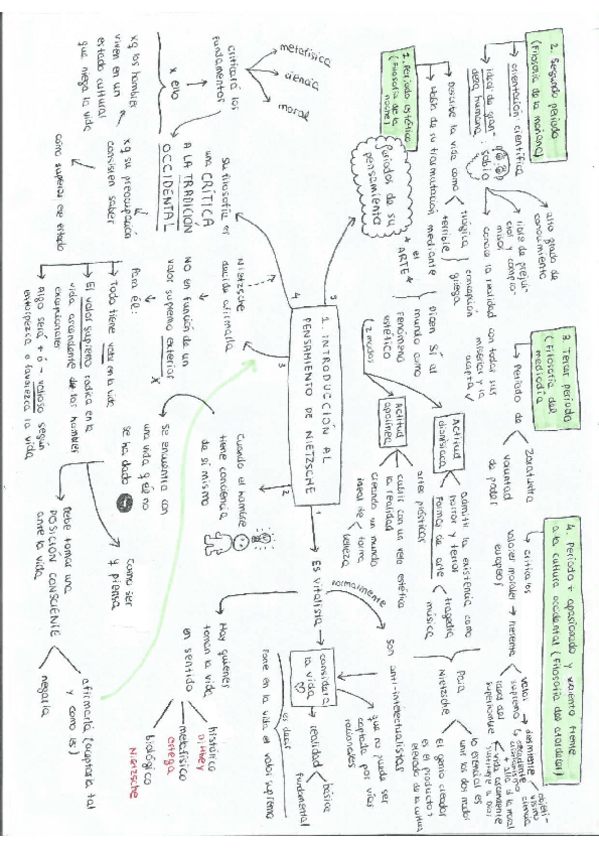 1. INTRODUCCIÓN AL
PENSAMIENTO DE NIETZSCHE
1
Es vitalista
normalmente
Son anti-intelectualistas
que no pueda ser
captado por vías
racionales
considera
la vida
realidad
básica
fundamental
es decir
Pone en la vida el valor supremo
Hay quienes
toman la vida
en sentido
histórico
Dilthey
metafísico
Ortega
biológico
Nietzsche
2
Cuando el hombre
tiene conciencia
de sí mismo
Se encuentra con
una vida q él no
se ha dado
como ser
q piensa
Debe tomar una
POSICIÓN CONSCIENTE
ante la vida
afirmarla (aceptarla tal
y como es)
negarla
3
Nietzsche
decide afirmarla
NO en función de un
valor supremo exterior
Para él:
Todo tiene valor en la vida
El valor supremo radica en la
vida ascendente de los hombres
excepcionales
Algo será + ó - valioso según
entorpezca o favorezca la vida
4
Su filosofía es
una CRÍTICA
A LA TRADICIÓN
OCCIDENTAL
criticará los
fundamentos
metafísica
ciencia
moral
x ello
xq los hombres
viven en un
estado cultural
que niega la vida
xq su preocupación
consiste en saber
cómo superar ese estado
5
Periodos de su
pensamiento
1. Periodo estético
(Filosofía de la
noche)
Describe la vida como
trágica
terrible
concepción
griega
Habla de su transmutación mediante
el
ARTE
Dicen SÍ al
mundo como
fenómeno
estético
(2 modos)
Actitud
apolínea
artes plásticas
cubrir con un velo estético
la realidad
creando un mundo
ideal de
forma
belleza
Actitud
dionisíaca
admitir la existencia como
horror y terror
Formas de arte
tragedia
música
Para
Nietzsche
lo esencial es
unir los dos modos
el genio creador
es el producto +
elevado de la cultura
2. Segundo periodo
(Filosofía de la mañana)
orientación científica
ideal de gran-
deza humana: sabio
alto grado de
conocimiento
libre de prejui-
cios y compro-
misos
conoce la realidad con todas sus
miserias y la
acepta
3. Tercer periodo
(Filosofía del
mediodía)
Periodo de
Zaratustra
voluntad
de poder
4. Periodo + apasionado y violento frente
a la cultura occidental (Filosofía del atardecer)
critica los
valores morales
europeos